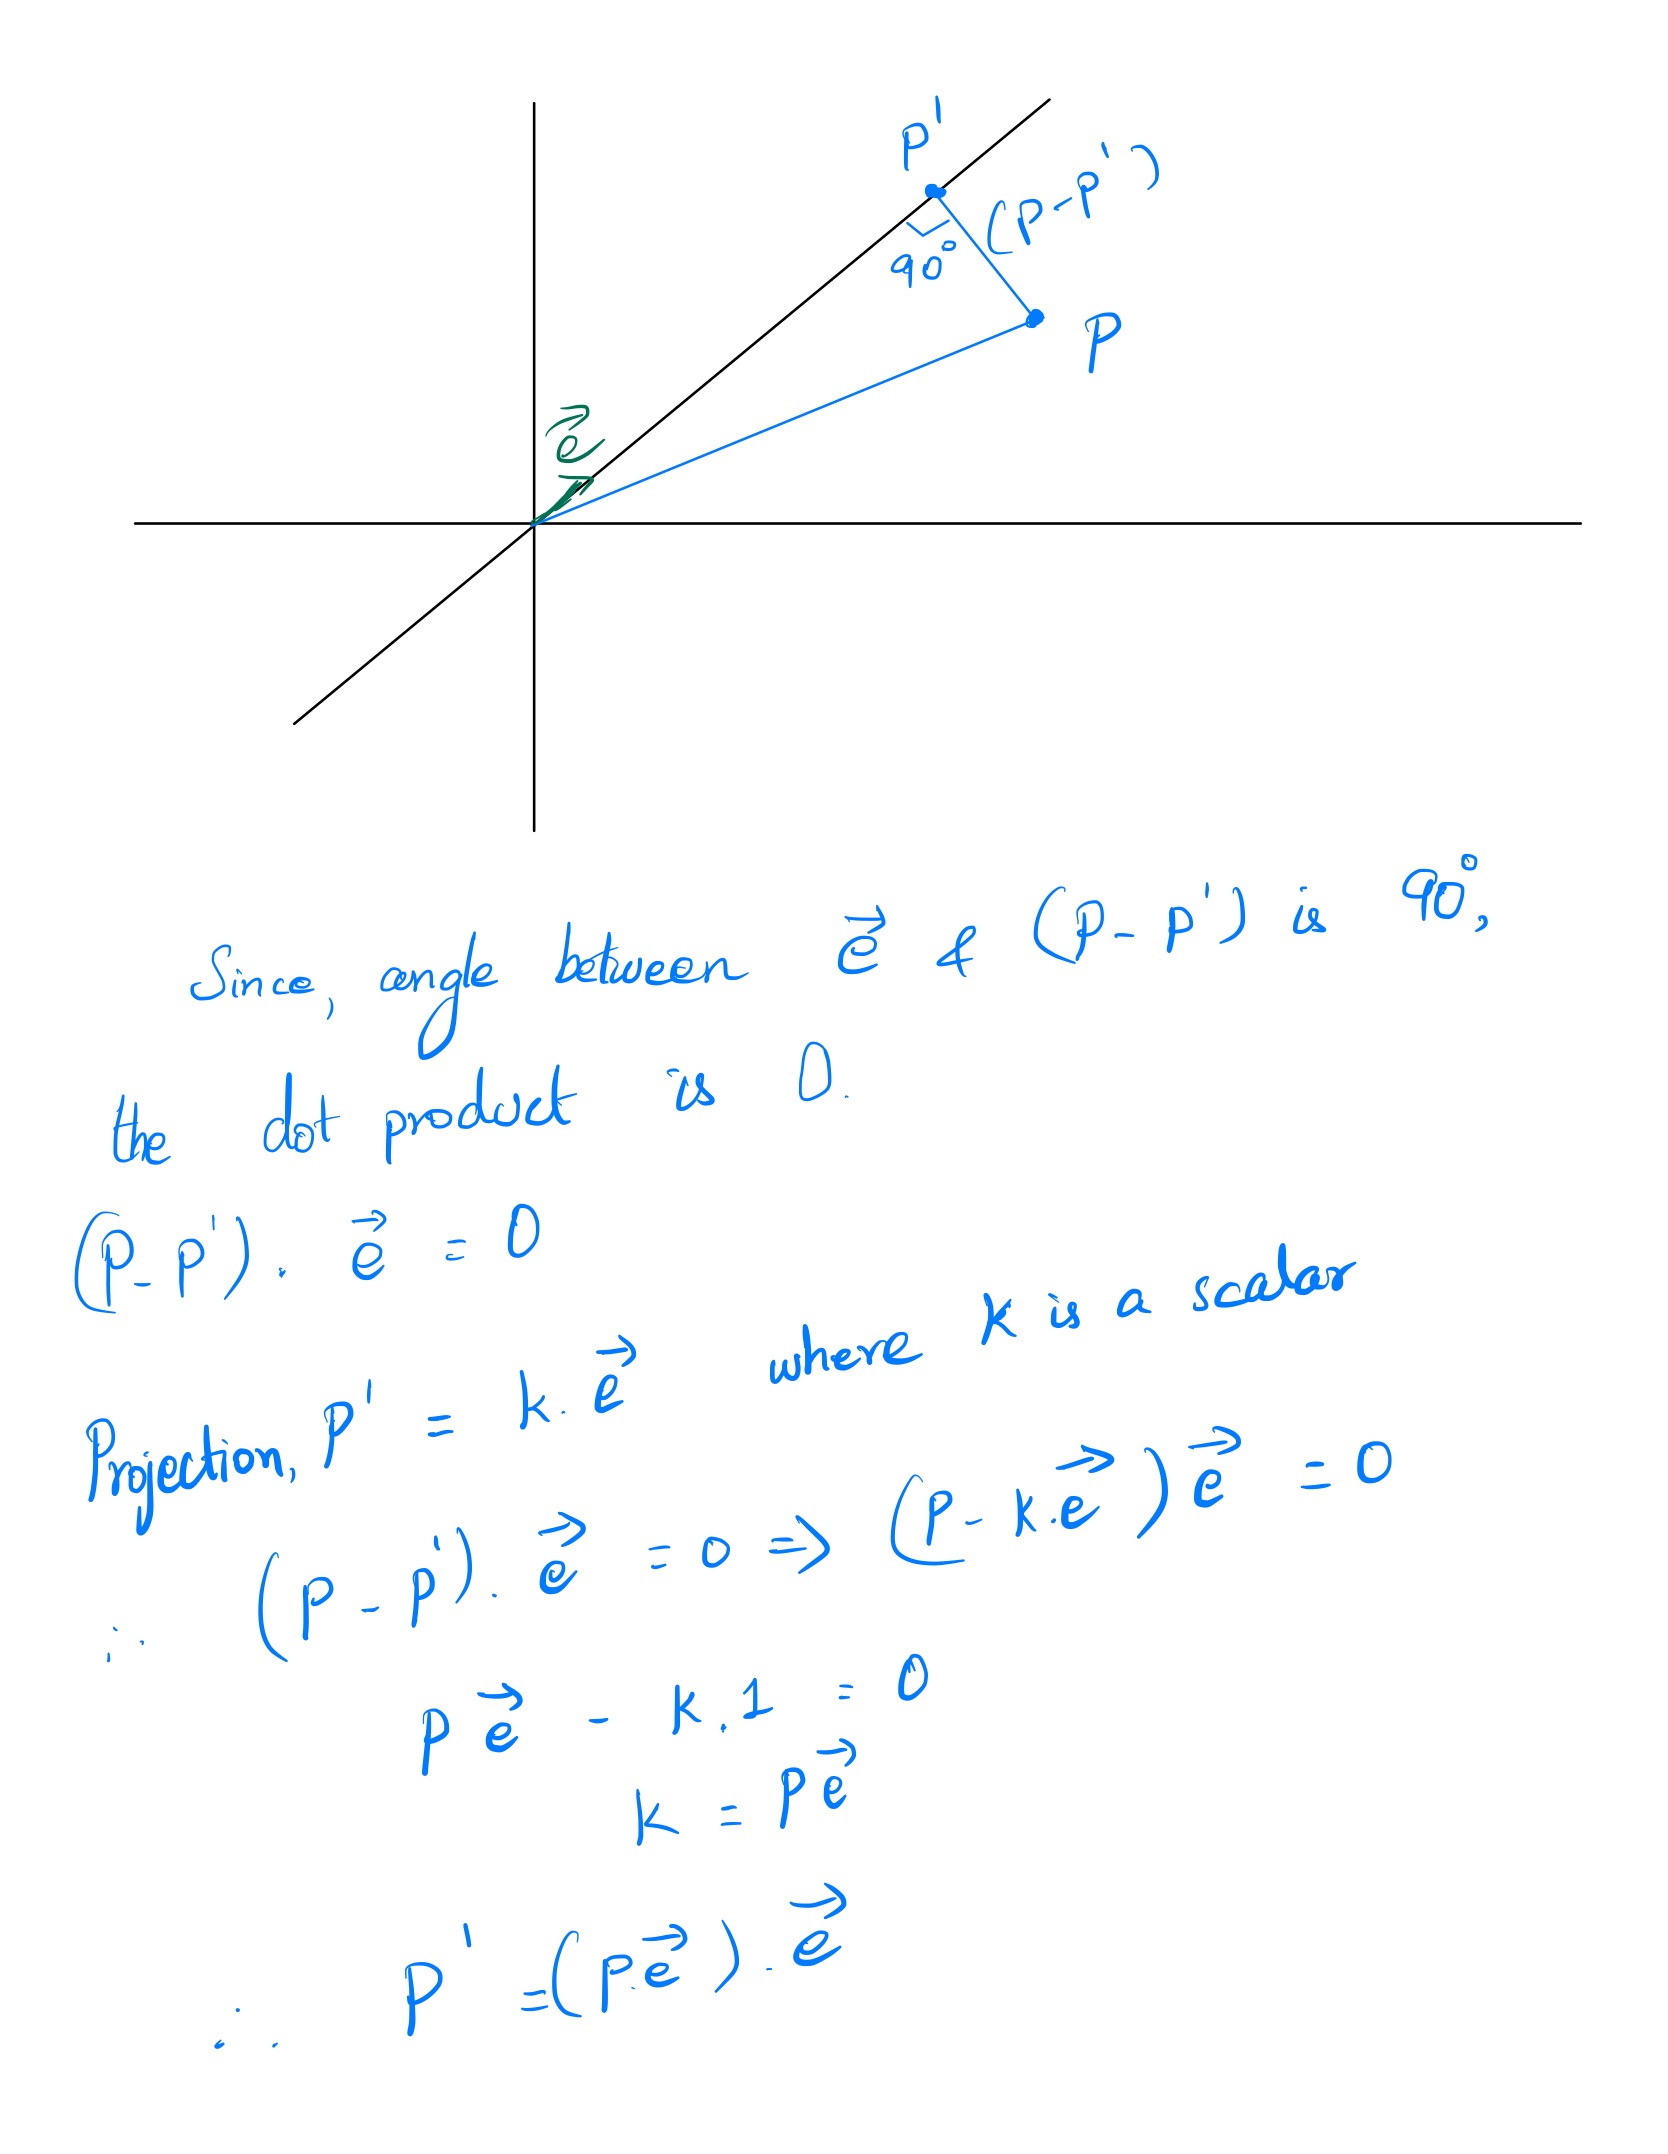 P'
(P-P')
90°
P
e⃗
Since, angle between e⃗ & (P-P') is 90°,
the dot product is 0.
(P-P') . e⃗ = 0
Projection, P' = k. e⃗ where k is a scalar
∴ (P-P') . e⃗ = 0 ⇒ (P-k.e⃗) e⃗ = 0
P e⃗ - k.1 = 0
k = P e⃗
∴ P' = (P.e⃗) . e⃗